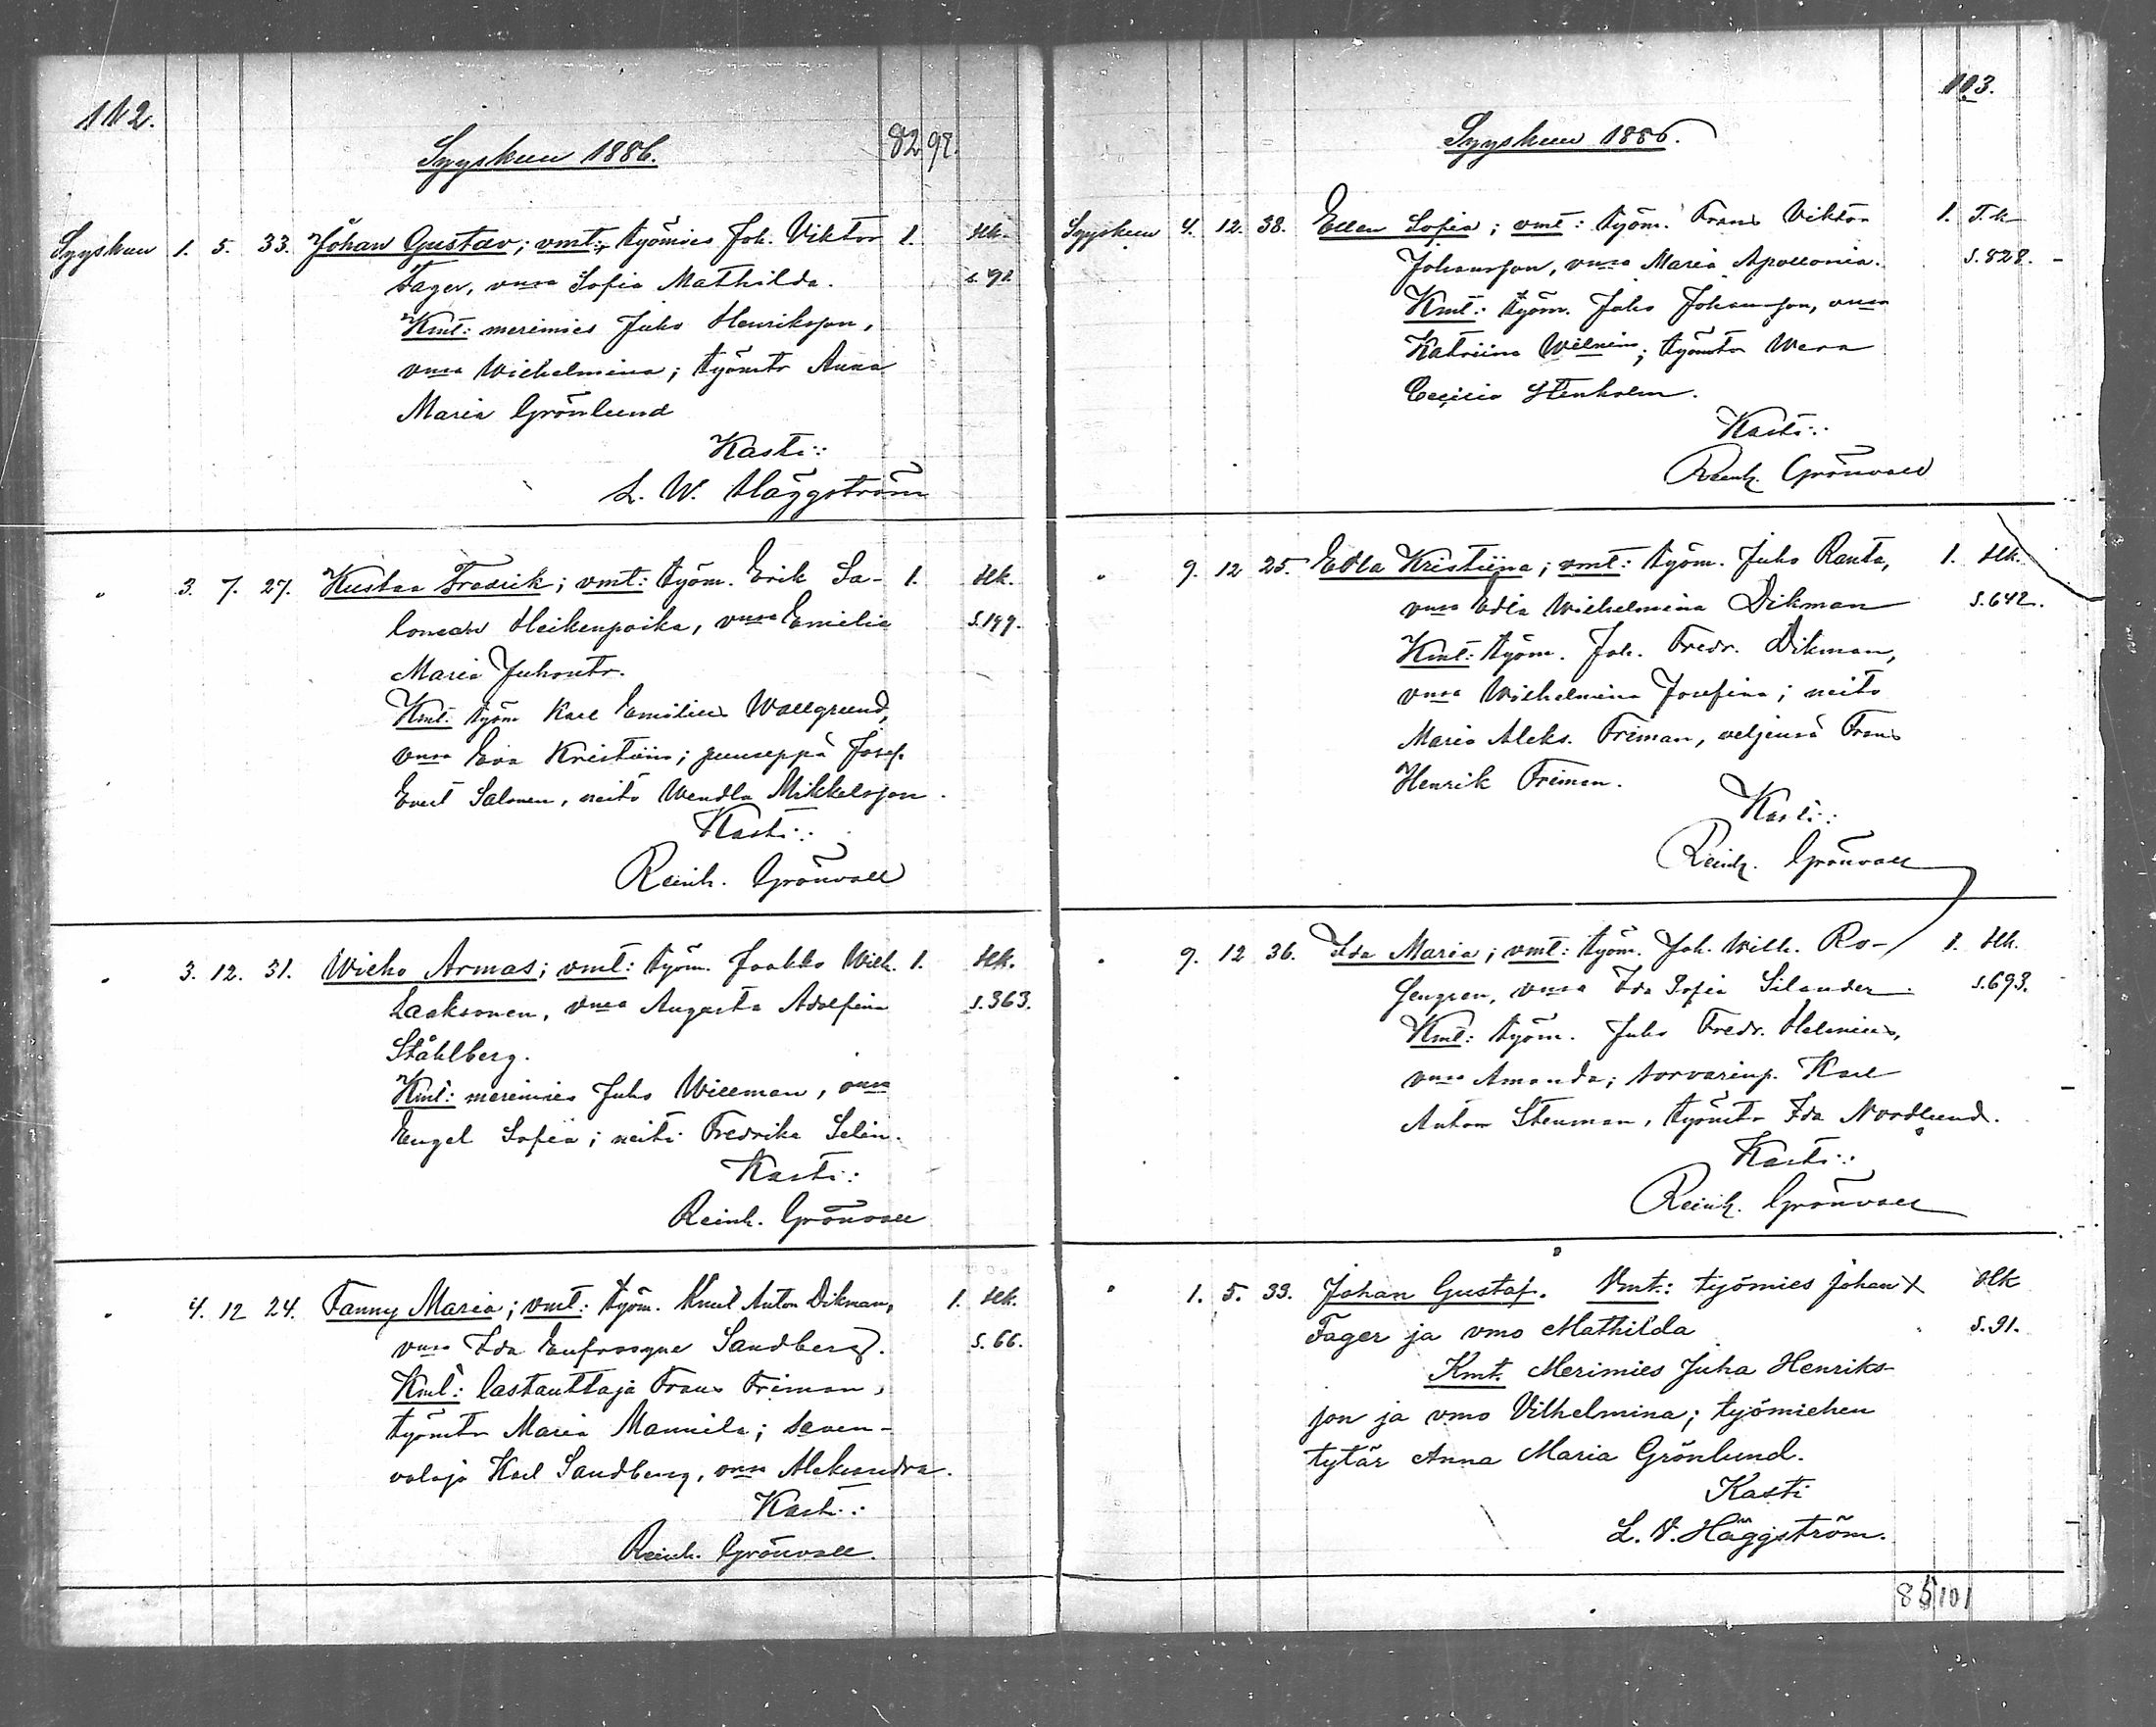 112.
Syyskuu 1886.
82 98.
Syyskuu 1. 5. 33. Johan Gustav; vmt: työmies Joh. Viktor 1. Hk.
Fager, vmsa Sofia Mathilda. s. 91.
Kmt: merimies Juho Henriksson,
vmsa Wilhelmina; työmtr Anna
Maria Grönlund
Kasti:
L. W. Häggström
" 3. 7. 27. Kustaa Fredrik; vmt: työm. Erik Sa- 1. Hk.
lomon Heikinpoika, vmsa Emilia S. 149.
Maria Juhontr.
Kmt: työm Karl Emilius Wallgrund,
vmsa Eva Kristiina; puuseppä Josef.
Evert Salonen, neito Wendla Mikkelsson.
Kasti:
Reinh. Grönvall
" 3. 12. 31. Wieho Armas; vmt: työm. Jaakko Wilh. 1. Hk.
Laaksonen, vmsa Augusta Adolfina S. 363.
Ståhlberg.
Kmt: merimies Juho Willman, vmsa
Engel Sofia; neiti Fredrika Selin.
Kasti:
Reinh. Grönvall
" 4. 12 24. Fanny Maria; vmt: työm. Knut Anton Dikman, 1. Hk.
vmsa Ida Eufrosyne Sandberg. S. 66.
Kmt: lastauttaja Frans Friman,
työmtr Maria Mannila; saven-
valaja Karl Sandberg, vmsa Aleksandra.
Kasti:
Reinh. Grönvall.
113.
Syyskuu 1886.
Syyskuu 4. 12. 38. Ellen Sofia; vmt: työm. Frans Viktor 1. T.k
Johansson, vmsa Maria Apollonia. S. 828.
Kmt: työm. Juho Johansson, vmsa
Katriina; työmtr Wera
Cecilia Stenholm.
Kasti:
Reinh. Grönvall
" 9. 12 25. Edla Kristiina; vmt: työm. Juho Ranta, 1. Hk.
vmsa Edla Wilhelmina Dikman S. 642.
Kmt: työm. Joh. Fredr. Dikman,
vmsa Wilhelmina Josefina; neito
Maria Aleks. Friman, veljensä Frans
Henrik Friman.
Kasti:
Reinh. Grönvall
" 9. 12 36. Ida Maria; vmt: työm. Joh. Wilh. Ro- 1. Hk.
sengren, vmsa Ida Sofia Silander. S. 693.
Kmt: työm. Juho Fredr. Helenius,
vmsa Amanda; torvarinp. Karl
Anton Stenman, työmtr Ida Nordlund.
Kasti:
Reinh. Grönvall
" 1. 5. 33. Johan Gustaf. Vmt: työmies Johan X Hk
Fager ja vmo Mathilda S. 91.
Kmt. Merimies Juha Henriks-
son ja vmo Vilhelmina; työmiehen
tytär Anna Maria Grönlund.
Kasti
L. V. Häggström.
85 101